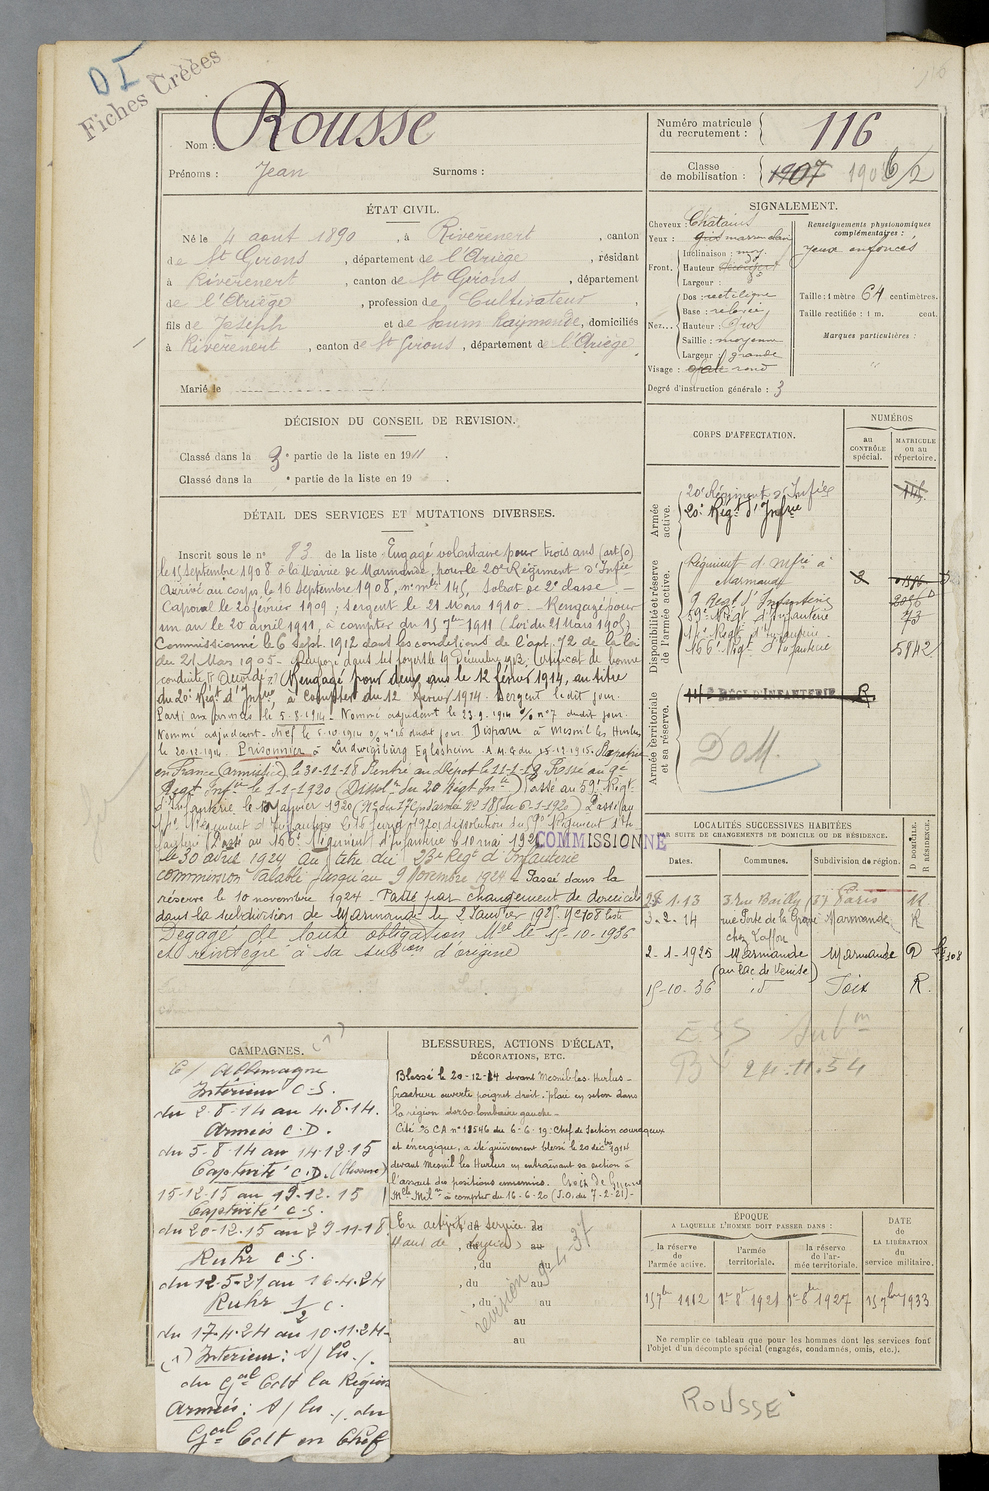 DI
Fiches Créées
Nom : Rousse
Prénoms : Jean Surnoms :
Numéro matricule du recrutement : 116
Classe de mobilisation : 1907 1906/2
ÉTAT CIVIL.
Né le 4 aout 1890, à Rivèrenert, canton
de St Girons, département de l'Ariège, résidant
à Rivèrenert, canton de St Girons, département
de l'Ariège, profession de Cultivateur,
fils de Joseph et de Soum Raymonde, domiciliés
à Rivèrenert, canton de St Girons, département de l'Ariège
Marié le
SIGNALEMENT.
Cheveux : Châtains
Yeux : gris marron clair
Front. Inclinaison : moy.
Hauteur
Largeur :
Nez... Dos : rectiligne
Base : relevée
Hauteur : Gros
Saillie : moyenne
Largeur : grande
Visage : ovale rond
Degré d'instruction générale : 3
Renseignements physionomiques complémentaires :
yeux enfoncés
Taille : 1 mètre 64 centimètres.
Taille rectifiée : 1 m. cent.
Marques particulières :
"
DÉCISION DU CONSEIL DE REVISION.
Classé dans la 3e partie de la liste en 1911.
Classé dans la e partie de la liste en 19 .
DÉTAIL DES SERVICES ET MUTATIONS DIVERSES.
Inscrit sous le no 83 de la liste Engagé volontaire pour trois ans (art 50)
le 15 Septembre 1908 à la Mairie de Marmande, pour le 20e Régiment d'Infie
Arrivé au corps, le 16 Septembre 1908, no mle 145, Soldat de 2e classe. –
Caporal le 20 février 1909, Sergent le 21 Mars 1910. – Rengagé pour
un an le 20 avril 1911, à compter du 15 7bre 1911 (Loi du 21 Mars 1905)
Commissionné le 6 Sept. 1912 dans les conditions de l'art. 72 de la loi
du 21 Mars 1905 – Renvoyé dans ses foyers le 19 Décembre 1913, Certificat de bonne
conduite "Accordé" Rengagé pour deux ans le 12 février 1914, au titre
du 20e Régt d'Infrie, à compter du 12 février 1914. Sergent le dit jour.
Parti aux armées le 5-8-1914 – Nommé adjudant le 23.9.1914 o/o no 7 dudit jour.
Nommé adjudant-chef le 5-10-1914 o/o no 15 dudit jour. Disparu à Mesnil les Hurlus
le 20-12-1914. Prisonnier à Ludwigsburg Eglosheim. A.M.G. du 15-12-1915. Rapatrié
en France (armistice) le 30-11-18 Rentré au Dépôt le 11-1-19 Passé au 9e
Régt Infie le 1-1-1920 (Dissoln du 20 Régt Infie) Passé au 59e Régt
d'Infanterie le Janvier 1920 Passé au
Régiment d'Infanterie le 16 Juin 1920, dissolution du 59e Régiment
Passé au 166e Régiment d'Infanterie le 10 mai 192
COMMISSIONNÉ
le 30 avril 1924 au titre du 23e Régt d'Infanterie
commission valable jusqu'au 9 Novembre 1924 – Passé dans la
réserve le 10 novembre 1924 – Passé par changement de domicile
dans la subdivision de Marmande le 2 Janvier 1925. No 2708 liste
Dégagé de toute obligation Mre le 15-10-1936
et réintégré à sa subon d'origine
CORPS D'AFFECTATION.
NUMÉROS
au CONTRÔLE spécial.
MATRICULE ou au répertoire.
Armée active.
20e Régiment d'Infie
20e Régt d'Infrie
Disponibilité et réserve de l'armée active.
Régiment d'Infie à Marmande
9 Régt d'Infanterie
59e Régt d'Infanterie 73
166e Régt d'Infanterie 5942
Armée territoriale et sa réserve.
RÉGt D'INFANTERIE R.
DOM.
LOCALITÉS SUCCESSIVES HABITÉES
PAR SUITE DE CHANGEMENTS DE DOMICILE OU DE RÉSIDENCE.
Dates. Communes. Subdivision de région. D DOMICILE. R RÉSIDENCE.
25.1.13 3 rue Bailly (3e) Paris R.
3-2-14 rue Porte de la Grave chez Laffon Marmande R
2-1-1925 Marmande (au lac de Venise) Marmande D
15-10-36 id Foix R.
ESS Subon
24.11.54
CAMPAGNES.
C/ Allemagne
Intérieur C.S.
du 2-8-14 au 4.8.14.
Armées C.D.
du 5-8-14 au 14-12-15
Captivité C.D. (blessure)
15-12-15 au 19-12-15
Captivité C.S.
du 20-12-15 au 29-11-18
Ruhr C.S.
du 12-5-21 au 16-4-24
Ruhr 1/2 C.
du 17-4-24 au 10-11-24
(1) Intérieur : s/ les /.
du Gal Cdt la Région
Armées : s/ les /. du
Gal Cdt en Chef
BLESSURES, ACTIONS D'ÉCLAT,
DÉCORATIONS, ETC.
Blessé le 20-12-14 devant Mesnil-les-Hurlus –
fracture ouverte poignet droit – plaie en séton dans
la région dorso lombaire gauche –
Cité o/o CA no 18546 du 6-6-19 : Chef de section courageux
et énergique, a été grièvement blessé le 20 décbre 1914
devant Mesnil les Hurlus en entraînant sa section à
l'assaut des positions ennemies. Croix de Guerre
Mlle Milre à compter du 16-6-20 (J.O. du 7-2-21) –
En activité de service du
4 ans de services au
, du au
, du au
, du au
au
au
revision 9-4-37
ÉPOQUE
A LAQUELLE L'HOMME DOIT PASSER DANS :
la réserve de l'armée active.
l'armée territoriale.
la réserve de l'armée territoriale.
DATE de LA LIBÉRATION du service militaire.
15 7bre 1912
1er 8bre 1921
1er 8bre 1927
15 7bre 1933
Ne remplir ce tableau que pour les hommes dont les services font
l'objet d'un décompte spécial (engagés, condamnés, omis, etc.).
ROUSSE